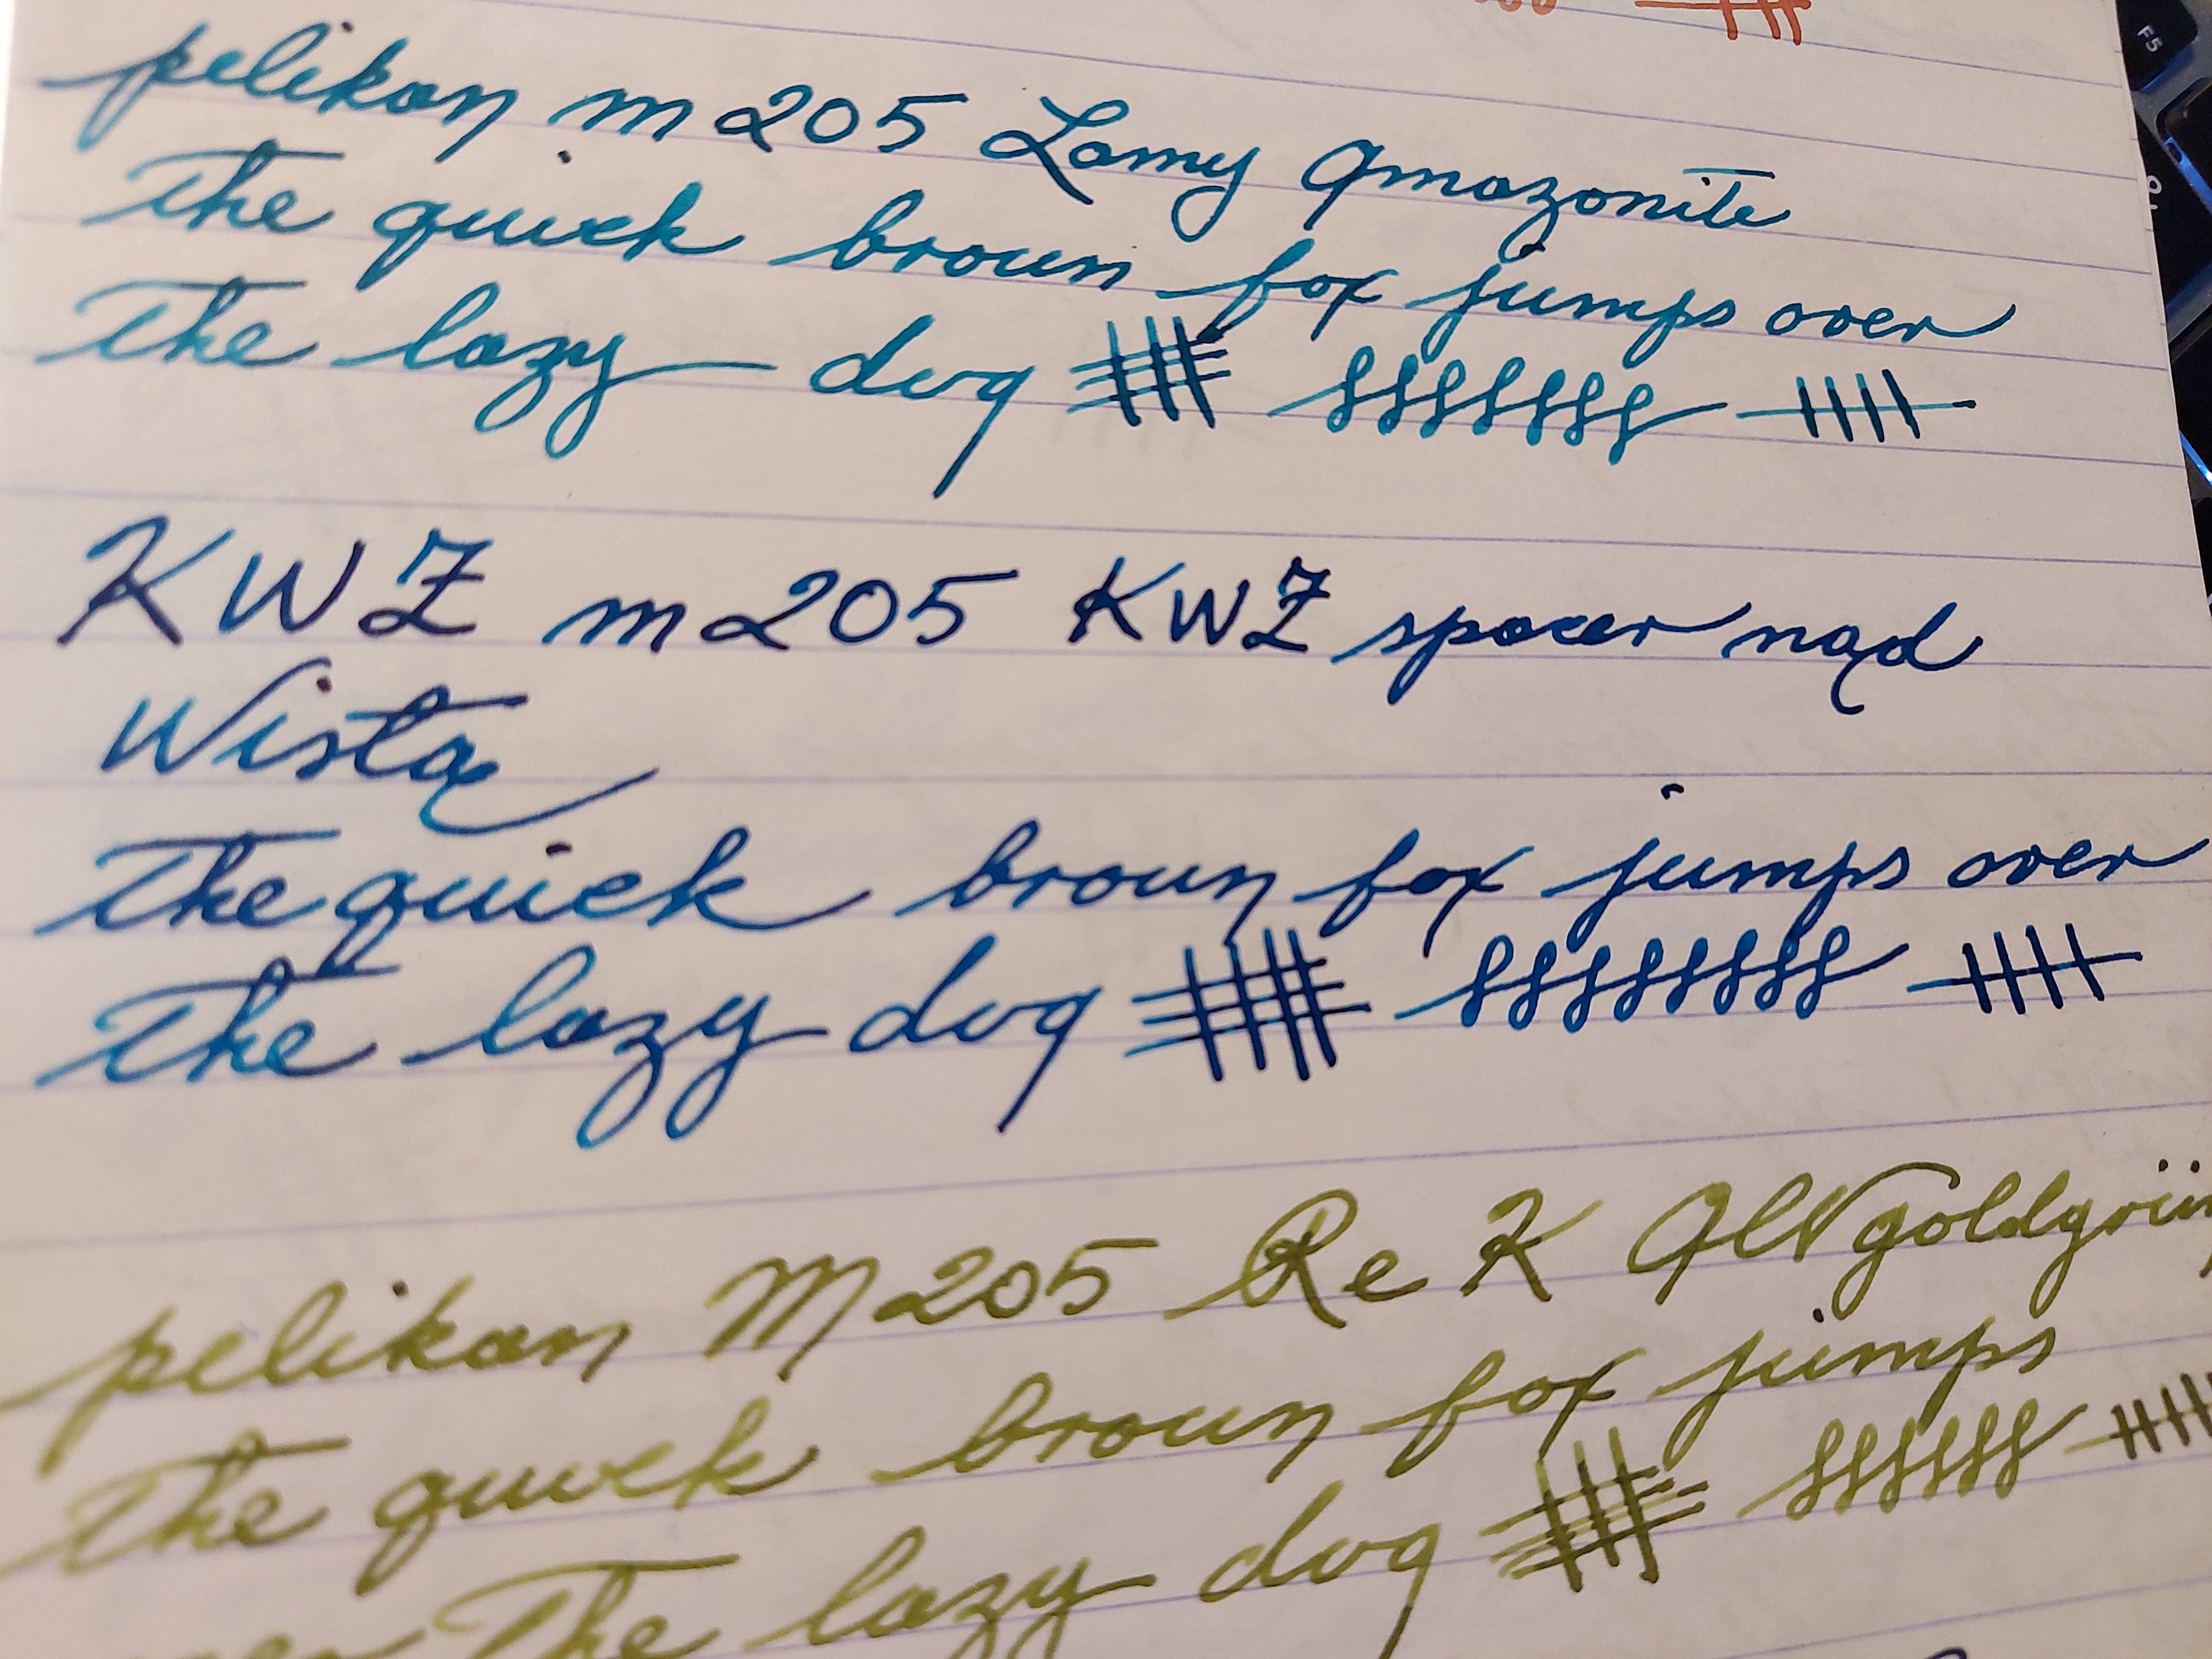 pelikan m205 Lamy Amazonite
the quick brown fox jumps over
the lazy dog
KWZ m205 KWZ spacer nad
Wisłą
the quick brown fox jumps over
the lazy dog
pelikan M205 R e K Alt goldgrün
the quick brown fox jumps
over the lazy dog
F5